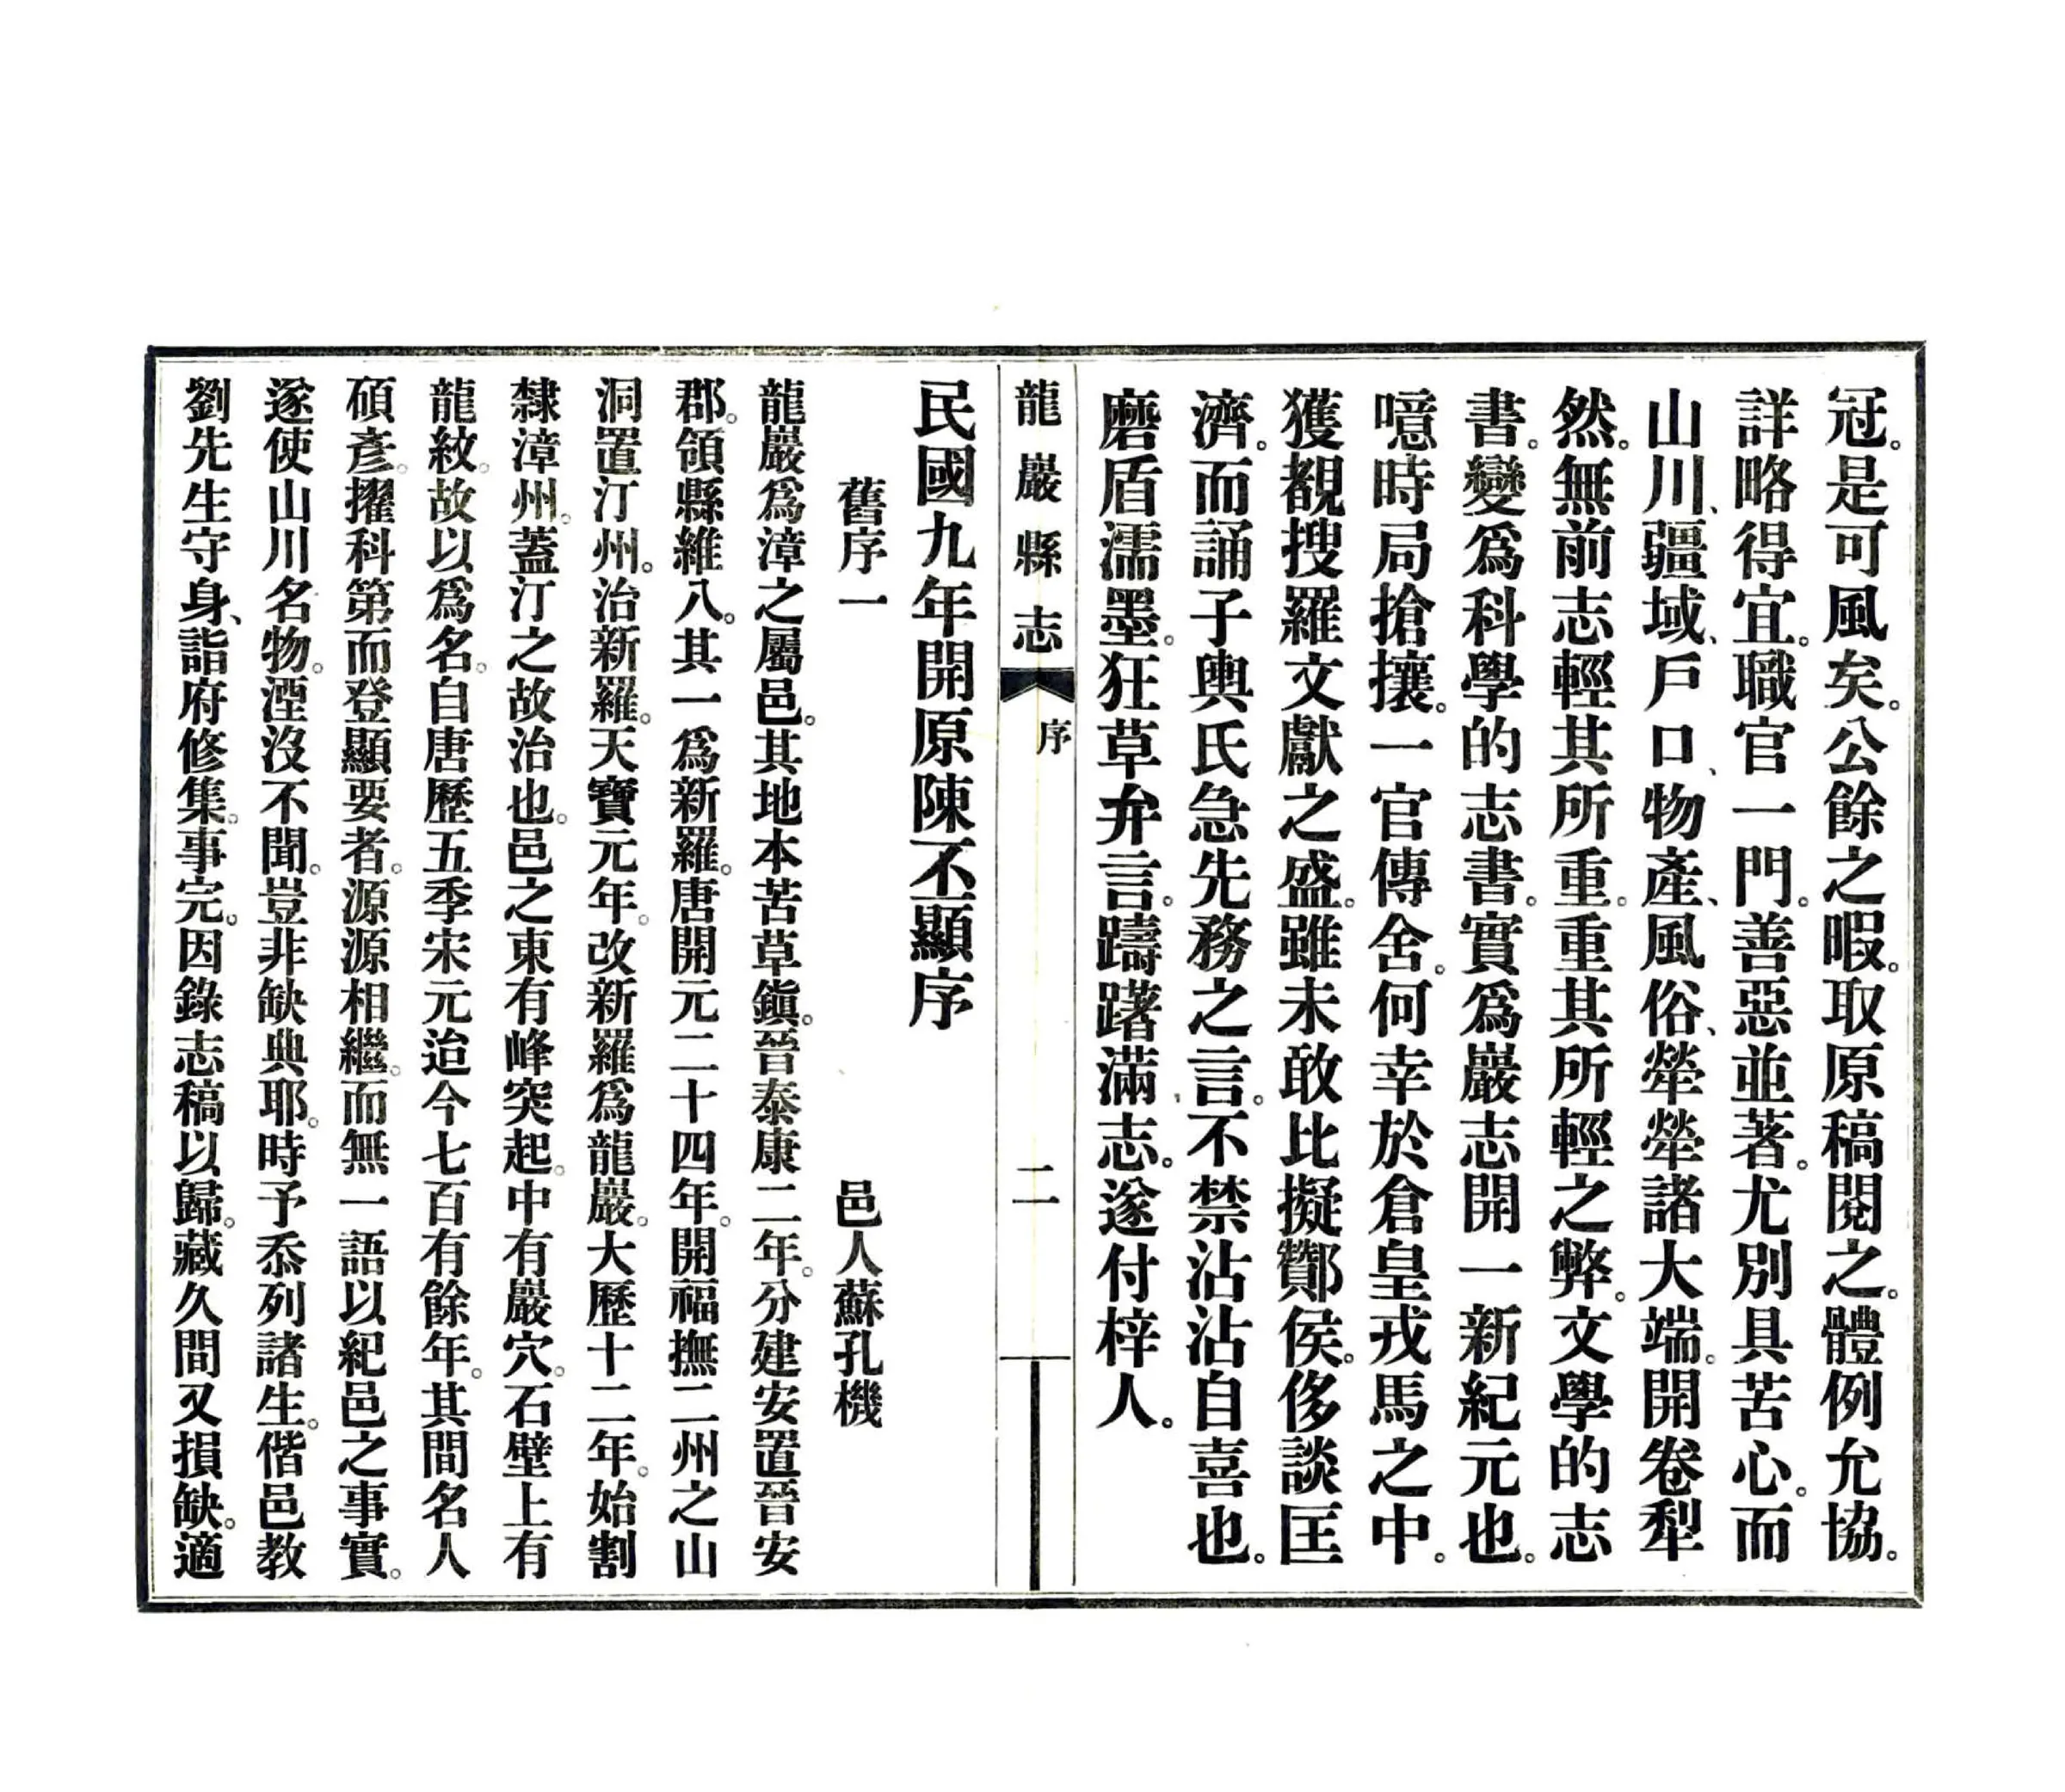 冠。是可風矣。公餘之暇。取原稿閱之。體例允協。
詳略得宜。職官一門。善惡並著。尤別具苦心。而
山川、疆域、戶口、物產、風俗、犖犖諸大端。開卷犁
然。無前志輕其所重。重其所輕之弊。文學的志
書。變爲科學的志書。實爲巖志開一新紀元也。
噫時局搶攘。一官傳舍。何幸於倉皇戎馬之中。
獲覩搜羅文獻之盛。雖未敢比擬酇侯。侈談匡
濟。而誦子輿氏急先務之言。不禁沾沾自喜也。
磨盾濡墨。狂草弁言。躊躇滿志。遂付梓人。
龍巖縣志 序 二
民國九年開原陳丕顯序
舊序一 邑人蘇孔機
龍巖爲漳之屬邑。其地本苦草鎮。晉泰康二年。分建安置晉安
郡。領縣維八。其一爲新羅。唐開元二十四年。開福撫二州之山
洞置汀州。治新羅。天寶元年。改新羅爲龍巖。大歷十二年。始割
隸漳州。蓋汀之故治也。邑之東有峰突起。中有巖穴。石壁上有
龍紋。故以爲名。自唐歷五季宋元迨今七百有餘年。其間名人
碩彥。擢科第而登顯要者。源源相繼。而無一語以紀邑之事實。
遂使山川名物。湮沒不聞。豈非缺典耶。時予忝列諸生。偕邑教
劉先生守身、詣府修集。事完。因錄志稿以歸。藏久間又損缺。適